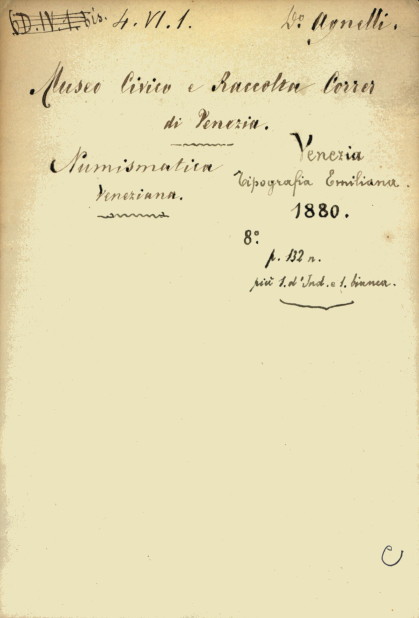 6D.IV.1.bis. 4.VI.1. Do Agnelli.
Museo Civico e Raccolta Correr
di Venezia.
Numismatica
Veneziana.
Venezia
Tipografia Emiliana.
1880.
8º
p. 132 n.
più 1. d'Ind. e 1. bianca.
C